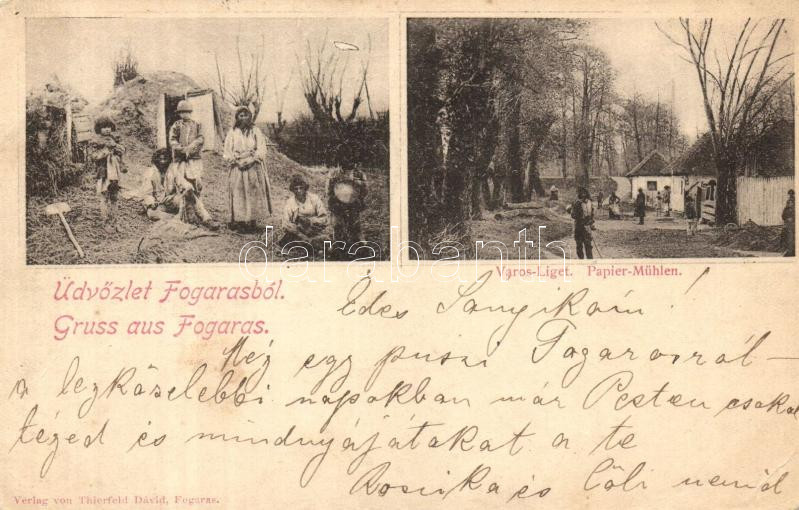 Város-Liget. Papier-Mühlen.
Üdvözlet Fogarasból.
Gruss aus Fogaras.
Édes Sanyikám!
Még egy puszi Fogarasról –
a legközelebbi napokban már Pesten csókol
téged és mindnyájatokat a te
Rosicka és Cöli nénid
Verlag von Thierfeld Dávid, Fogaras.
darabanth